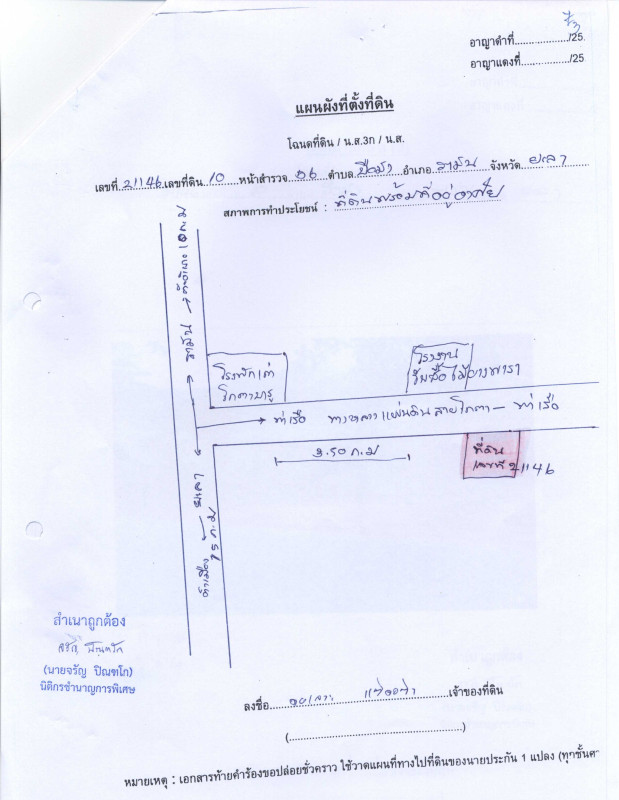 อาญาดำที่................../25
อาญาแดงที่................/25
แผนผังที่ตั้งที่ดิน
โฉนดที่ดิน / น.ส.3ก / น.ส.
เลขที่ 21146 เลขที่ดิน 10 หน้าสำรวจ 56 ตำบล อำเภอ รามัน จังหวัด ยะลา
สภาพการทำประโยชน์ : ที่ดินพร้อมที่อยู่อาศัย
โรงพัก เก่า
โกตาบารู
โรงงาน
รับซื้อไม้ยางพารา
→ ท่าเรือ ทางหลวงแผ่นดิน สายโกตา – ท่าเรือ
2.50 ก.ม
ที่ดิน
เลขที่ 21146
รามัน
ยะลา
ก.ม
สำเนาถูกต้อง
(นายจรัญ ปิณฑโก)
นิติกรชำนาญการพิเศษ
ลงชื่อ เจ้าของที่ดิน
(..........................................................)
หมายเหตุ : เอกสารท้ายคำร้องขอปล่อยชั่วคราว ใช้วาดแผนที่ทางไปที่ดินของนายประกัน 1 แปลง (ทุกชั้นศ